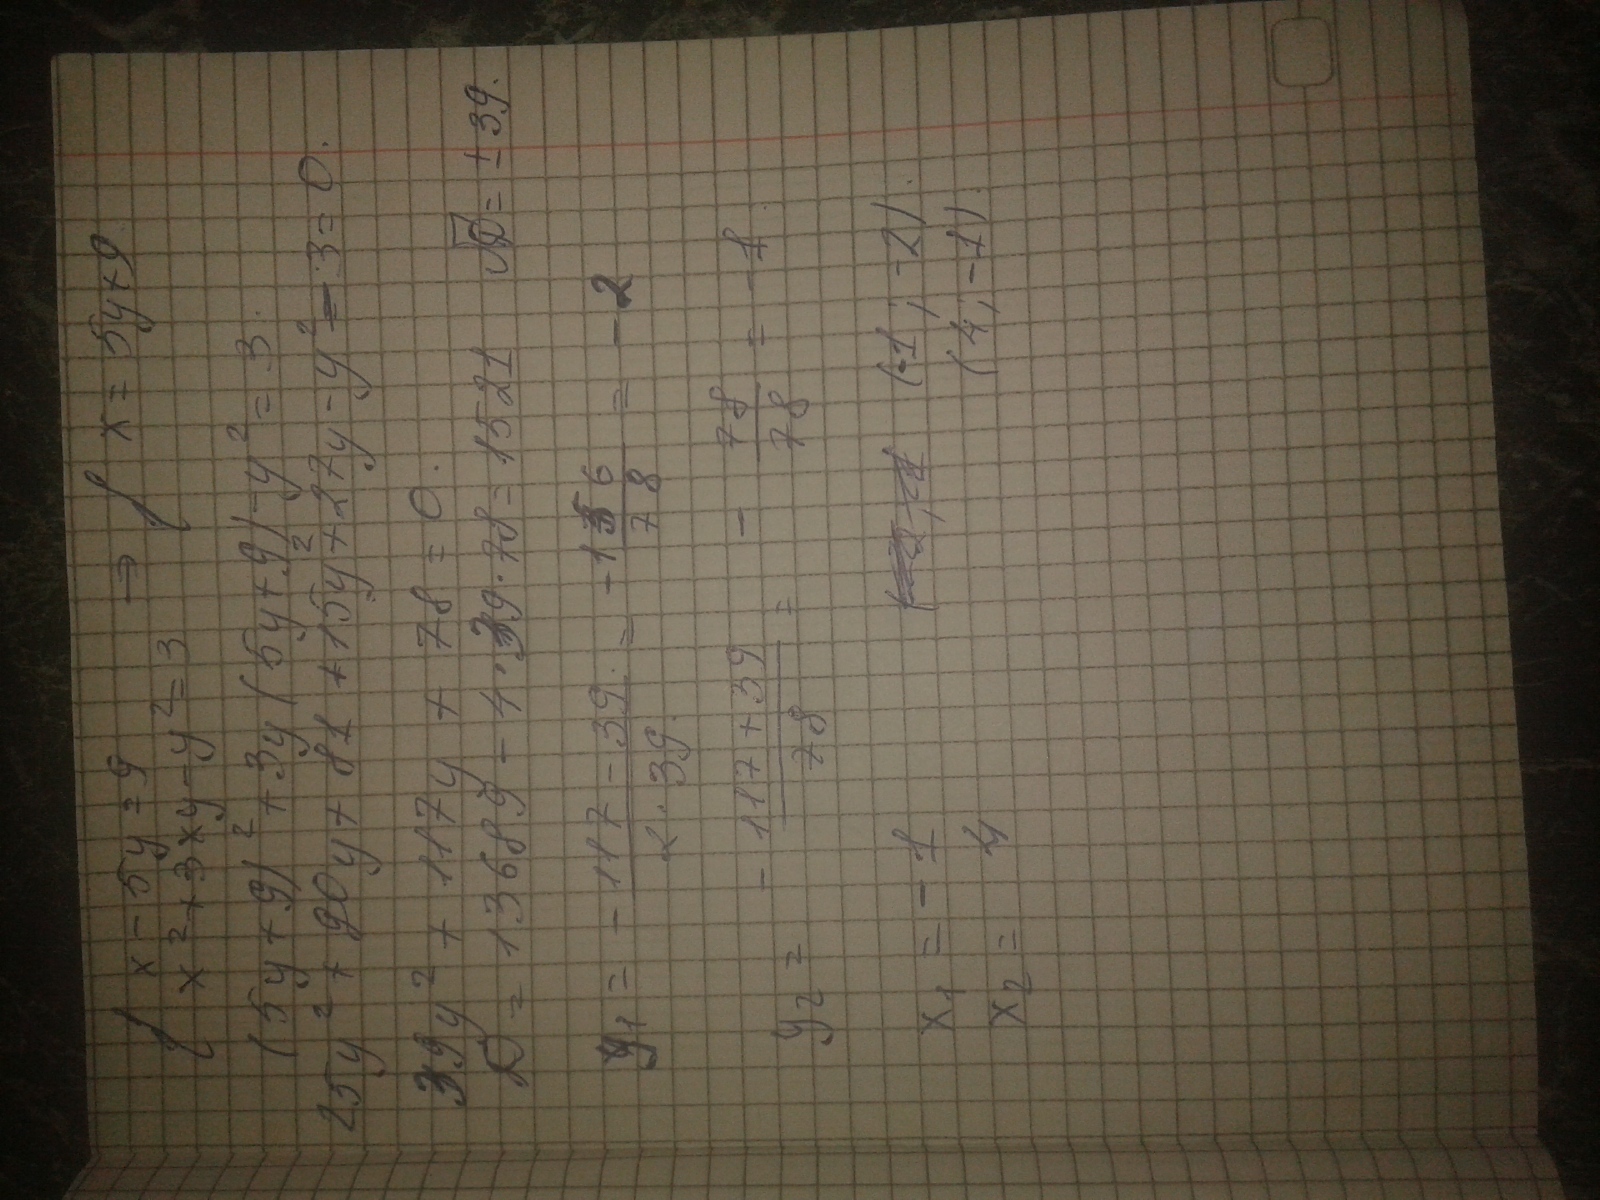 { x - 5y = 9 → { x = 5y + 9
x² + 3xy - y² = 3
(5y + 9)² + 3y(5y + 9) - y² = 3.
25y² + 90y + 81 + 15y² + 27y - y² - 3 = 0.
39y² + 117y + 78 = 0.
D = 13689 - 4·39·78 = 1521 √D = ±39.
y₁ = (-117 - 39)/(2·39) = -156/78 = -2
y₂ = (-117 + 39)/78 = -78/78 = -1.
x₁ = -1 (-1; -2).
x₂ = 4 (4; -1).